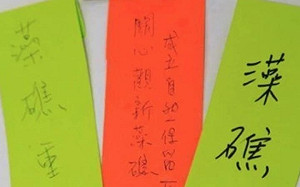 藻礁重
關心觀新藻礁
成立自然保留
藻礁